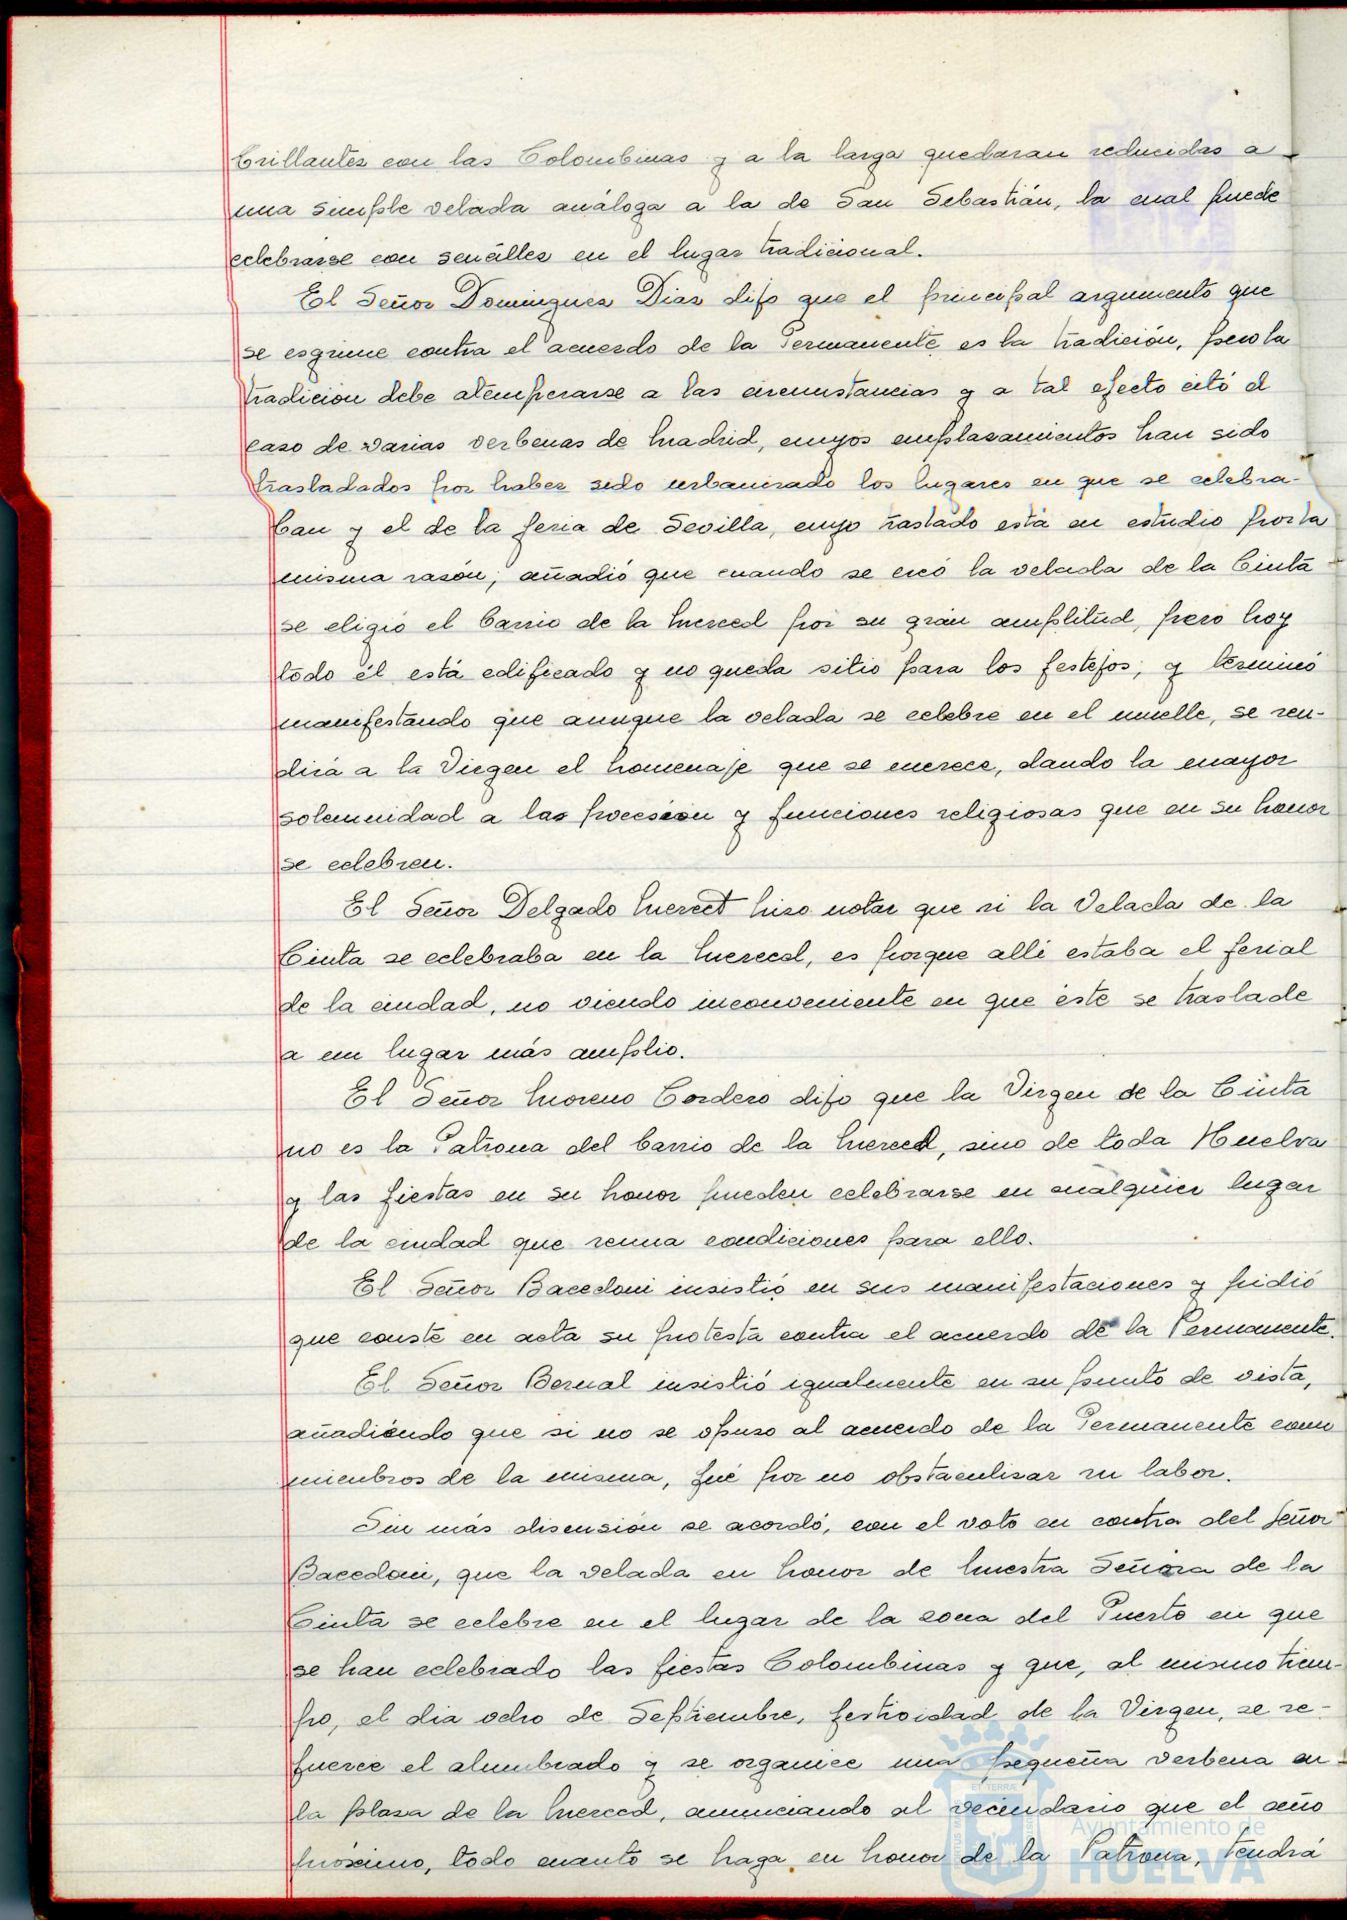 brillantes con las Colombinas y a la larga quedaran reducidas a
una simple velada análoga a la de San Sebastián, la cual puede
celebrarse con sencillez en el lugar tradicional.
El Señor Dominguez Diaz dijo que el principal argumento que
se esgrime contra el acuerdo de la Permanente es la tradición, pero la
tradición debe atemperarse a las circunstancias y a tal efecto citó el
caso de varias verbenas de Madrid, cuyos emplazamientos han sido
trasladados por haber sido urbanizado los lugares en que se celebra-
ban y el de la feria de Sevilla, cuyo traslado está en estudio por la
misma razón; añadió que cuando se creó la velada de la Cinta
se eligió el barrio de la Merced por su gran amplitud, pero hoy
todo él está edificado y no queda sitio para los festejos; y terminó
manifestando que aunque la velada se celebre en el muelle, se ren-
dirá a la Virgen el homenaje que se merece, dando la mayor
solemnidad a las procesión y funciones religiosas que en su honor
se celebren.
El Señor Delgado Merect hizo notar que si la Velada de la
Cinta se celebraba en la Merced, es porque allí estaba el ferial
de la ciudad, no viendo inconveniente en que éste se traslade
a un lugar más amplio.
El Señor Moreno Cordero dijo que la Virgen de la Cinta
no es la Patrona del barrio de la Merced, sino de toda Huelva
y las fiestas en su honor pueden celebrarse en cualquier lugar
de la ciudad que reuna condiciones para ello.
El Señor Bacedoni insistió en sus manifestaciones y pidió
que conste en acta su protesta contra el acuerdo de la Permanente.
El Señor Bernal insistió igualmente en su punto de vista,
añadiendo que si no se opuso al acuerdo de la Permanente como
miembros de la misma, fué por no obstaculizar su labor.
Sin más discusión se acordó, con el voto en contra del Señor
Bacedoni, que la velada en honor de Nuestra Señora de la
Cinta se celebre en el lugar de la zona del Puerto en que
se han celebrado las fiestas Colombinas y que, al mismo tiem-
po, el dia ocho de Septiembre, festividad de la Virgen, se re-
fuerce el alumbrado y se organice una pequeña verbena en
la plaza de la Merced, anunciando al vecindario que el año
próximo, todo cuanto se haga en honor de la Patrona, tendrá
Ayuntamiento de
HUELVA